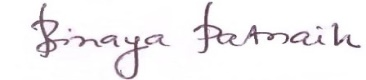 Binaya Patnaik